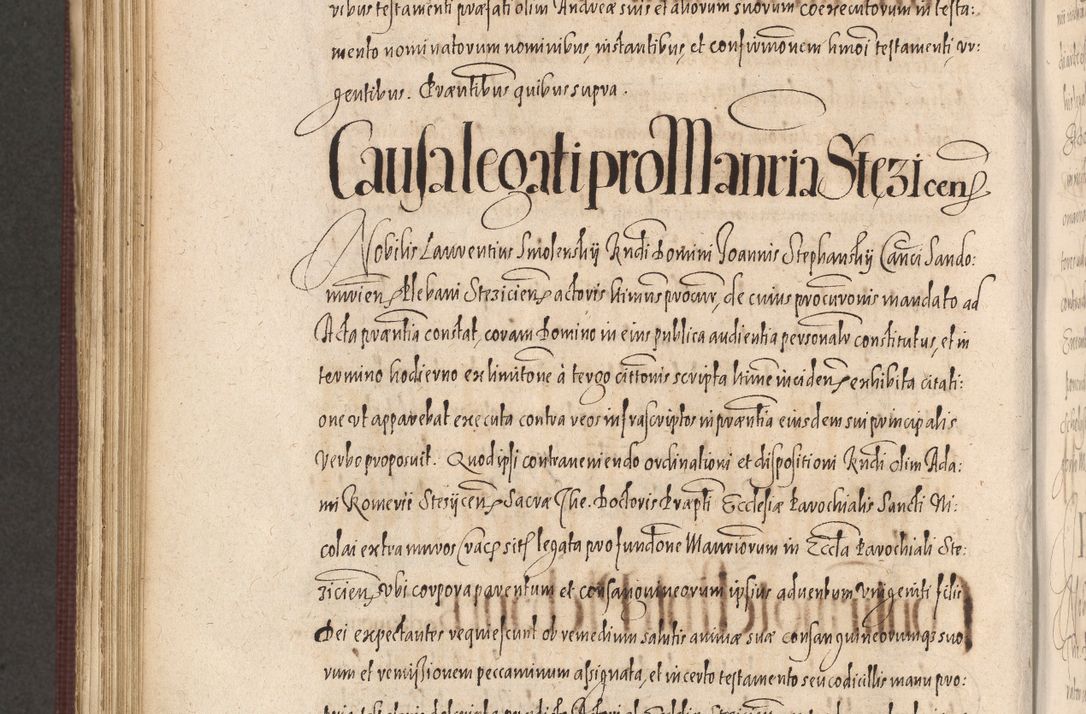 vibus testamenti præfati olim Andreæ suis et aliorum suorum coexecutorum in testa:
mento nominatorum nominibus, instantibus, et confirmõnem hmõi testamenti, vr:
gentibus. Præntibus quibus supra.
Causa legati pro Manria Stęzicen̄
Nobilis Laurentius Smolenskÿ Rndi Domini Joannis Stephanskÿ Canci Sando:
mirien̄ Plebani Stezicien̄ actoris ltimus procur, de cuius procurōnis mandato ad
Acta præntia constat, coram Domino in eius publica audientia personalr constitutus, et in
termino hodierno ex limitōne à tergo cittōnis scripta ltime inciden̄ exhibita citati:
one vt apparebat executa contra reos infrascriptos in præntia eiusdem sui principalis
verbo proposuit. Quod ipsi contraveniendo ordinationi et dispositioni Rndi olim Ada:
mi Romerii Steziicen̄ Sacræ The. Doctoris Præpti Ecclesiæ Parochialis Sancti Ni:
colai extra muros Crac̄ sit̄ legata pro fundōne Manriorum in Eccla Parochiali Ste:
zicien̄, vbi corpora parentum et consanguineorum ipsius adventum Vnigeniti filii
Dei expectantes requiescunt ob remedium salutis animæ suæ consanguineorumq3 suo
rum et remissionem peccaminum assignata, et in certo testamento seu codicillis manu pro: